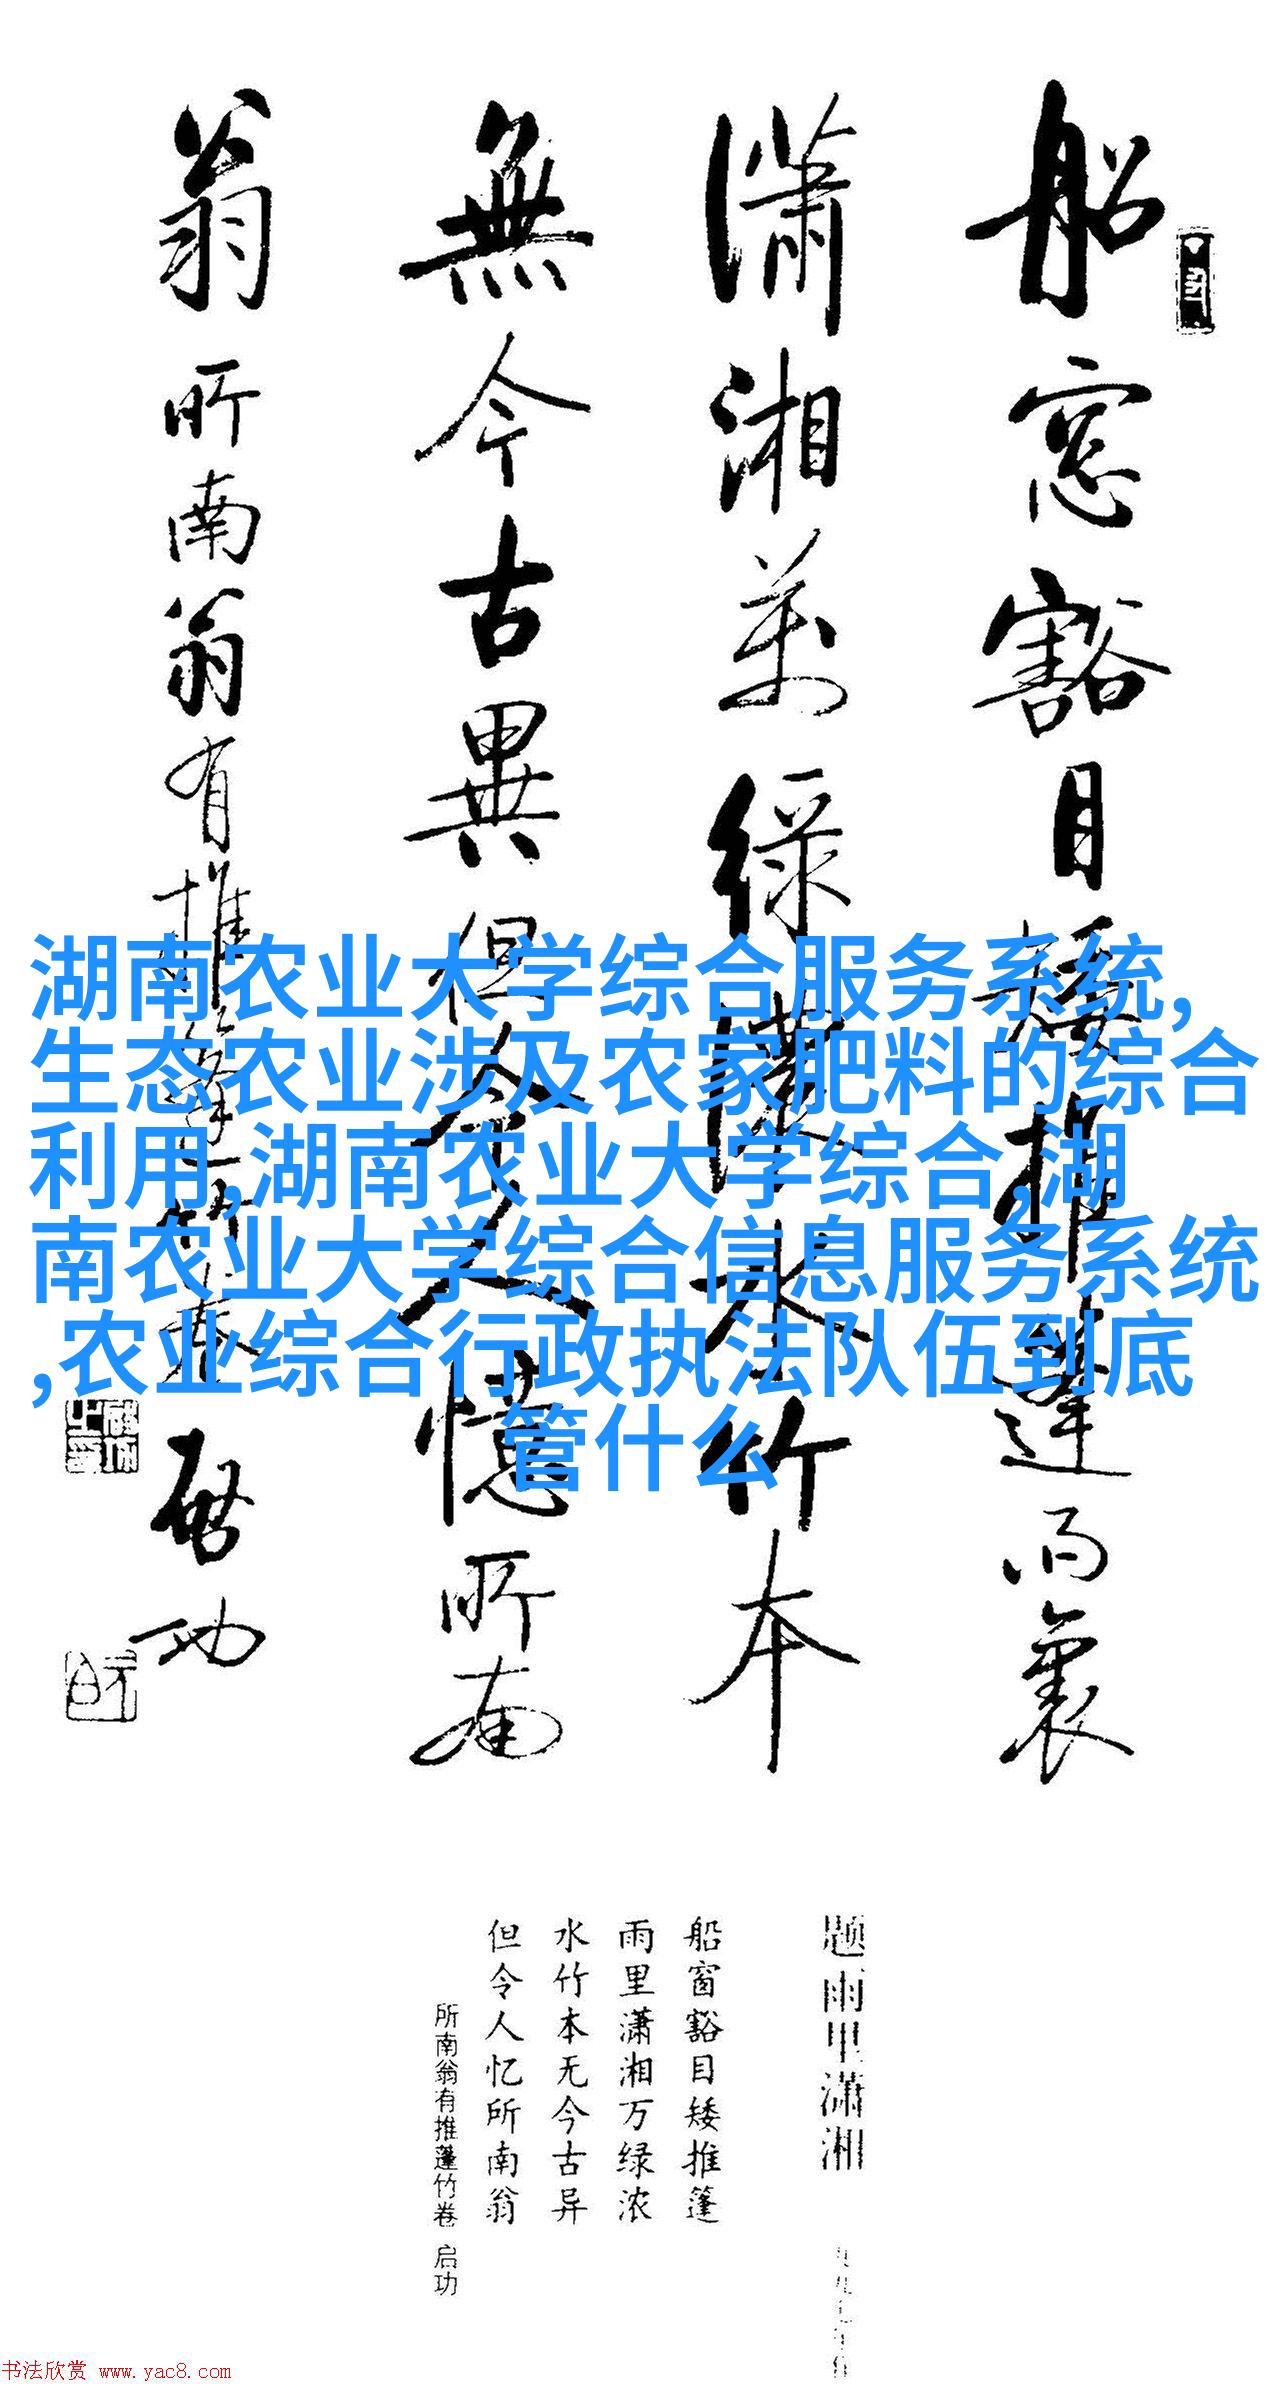 船窓豁目矮推篷雨裏
潇湘万緑濃水竹本
無今古異但令人憶所南
翁 所南翁有推篷竹卷 启功
湖南农业大学综合服务系统,
生态农业涉及农家肥料的综合
利用,湖南农业大学综合,湖
南农业大学综合信息服务系统
,农业综合行政执法队伍到底
管什么
题雨里潇湘
船窗豁目矮推篷
雨里潇湘万绿浓
水竹本无今古异
但令人忆所南翁
所南翁有推蓬竹卷 启功
书法欣赏 www.yac8.com